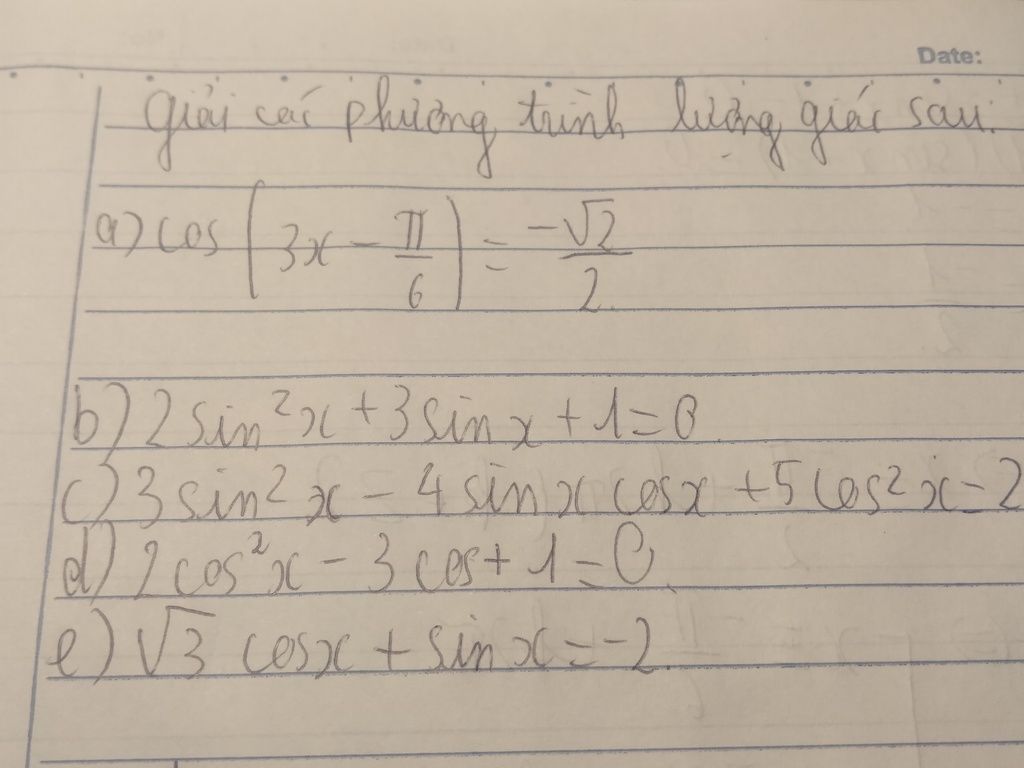 Date:
Giải các phương trình lượng giác sau:
a) cos(3x - π/6) = -√2/2
b) 2sin²x + 3sinx + 1 = 0
c) 3sin²x - 4sinxcosx + 5cos²x = 2
d) 2cos²x - 3cos + 1 = 0
e) √3 cosx + sinx = -2